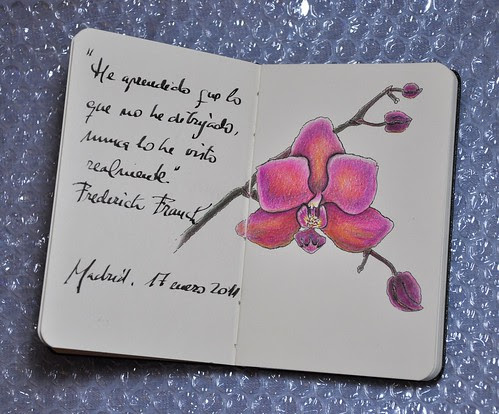 "He aprendido que lo
que no he dibujado,
nunca lo he visto
realmente."
Frederick Franck
Madrid. 17 enero 2011